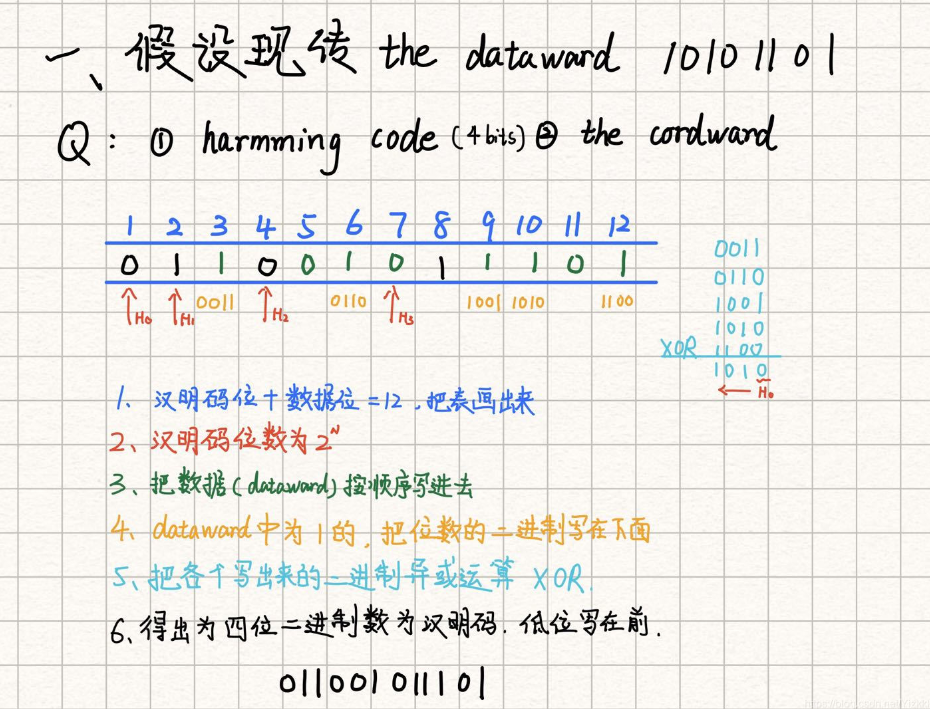 一、假设现传 the dataward 10101101
Q: ① harmming code (4 bits) ② the cordward
1 2 3 4 5 6 7 8 9 10 11 12
0 1 1 0 0 1 0 1 1 1 0 1
H₀ H₁ 0011 H₂ 0110 H₃ 1001 1010 1100
0011
0110
1001
1010
XOR 1100
1010
← H₀
1、汉明码位+数据位=12，把表画出来
2、汉明码位数为2ᴺ
3、把数据(dataward)按顺序写进去
4、dataward中为1的，把位数的二进制写在下面
5、把各个写出来的二进制异或运算 XOR.
6、得出为四位二进制数为汉明码.低位写在前.
011001011101